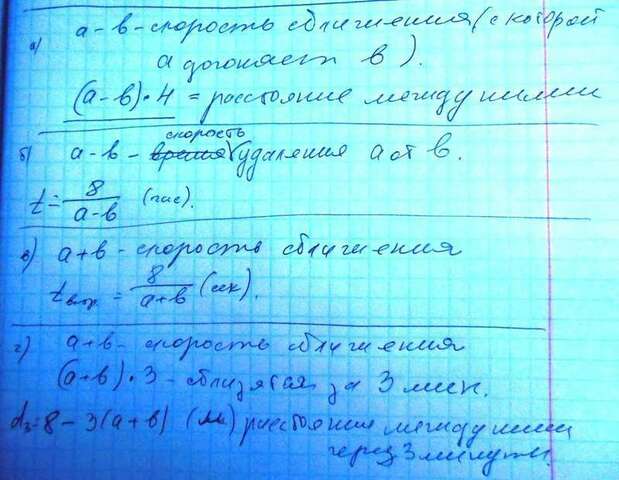 а) a-в-скорость сближения (с которой
a догоняет в).
(a-в)·4 = расстояние между ними
скорость
б) a-в - время удаления a от в.
t = 8/(a-в) (час).
в) a+в - скорость сближения
tвстр = 8/(a+в) (сек).
г) a+в - скорость сближения
(a+в)·3 - сблизятся за 3 мин.
d₃=8-3(a+в) (м) расстояния между ними
через 3 минуты.